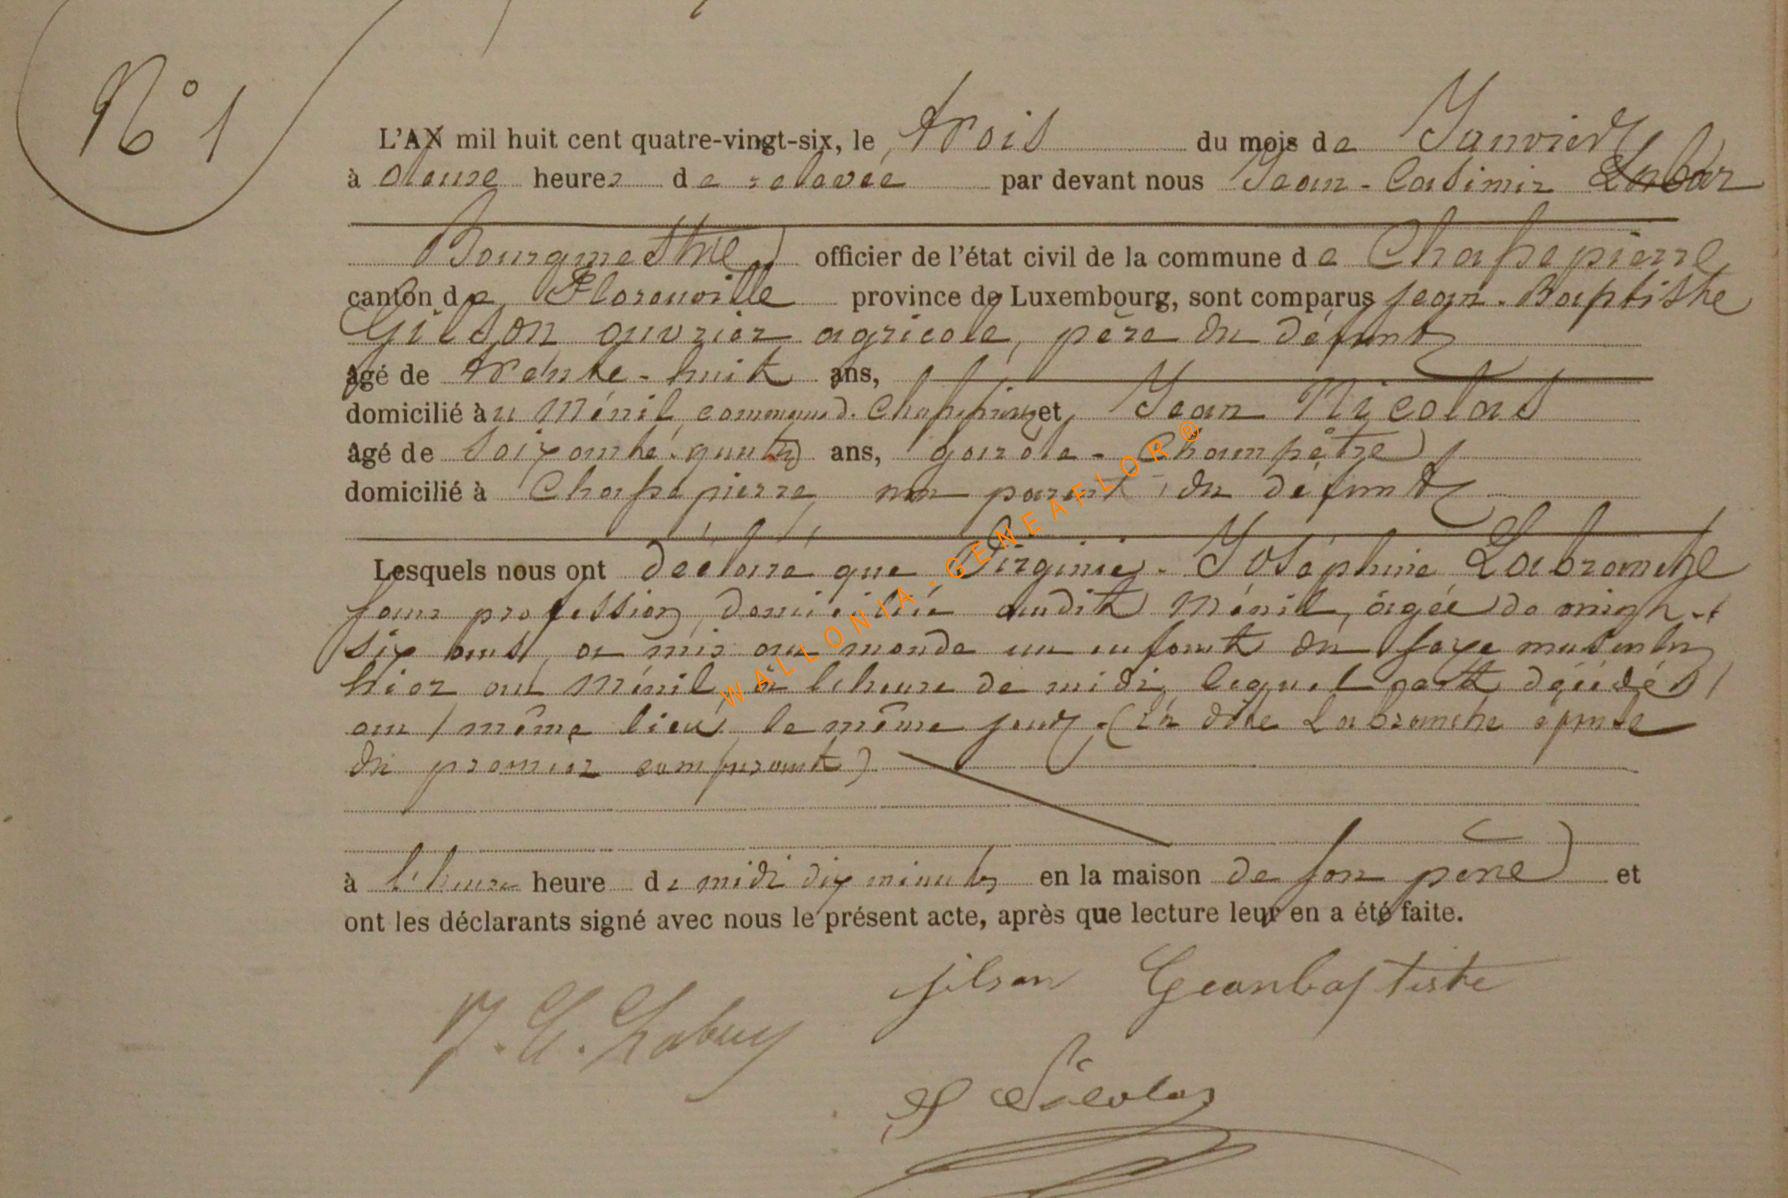 N° 1
L'AN mil huit cent quatre-vingt-six, le trois du mois de Janvier
à deux heures de relevée par devant nous Jean-Casimir
Bourgmestre officier de l'état civil de la commune de Chassepierre
canton de Florenville province de Luxembourg, sont comparus Jean-Baptiste
Gilson ouvrier agricole, père du défunt
âgé de trente-huit ans,
domicilié au Ménil commune de Chassepierre et Jean Nicolas
âgé de soixante ans, garde-champêtre
domicilié à Chassepierre, non parent du défunt
Lesquels nous ont déclaré que Virginie-Joséphine Labranche
sans profession, domiciliée audit Ménil, âgée de vingt-
six ans, a mis au monde un enfant du sexe masculin
hier au Ménil à l'heure de midi, lequel est décédé
au même lieu, le même jour. (la dite Labranche épouse
du premier comparant)
à l'heure heure de midi dix minutes en la maison de son père et
ont les déclarants signé avec nous le présent acte, après que lecture leur en a été faite.
jilson Geanbaptiste
J. C. Labuy
Nicolas
WALLONIA-GENEAFLOR®